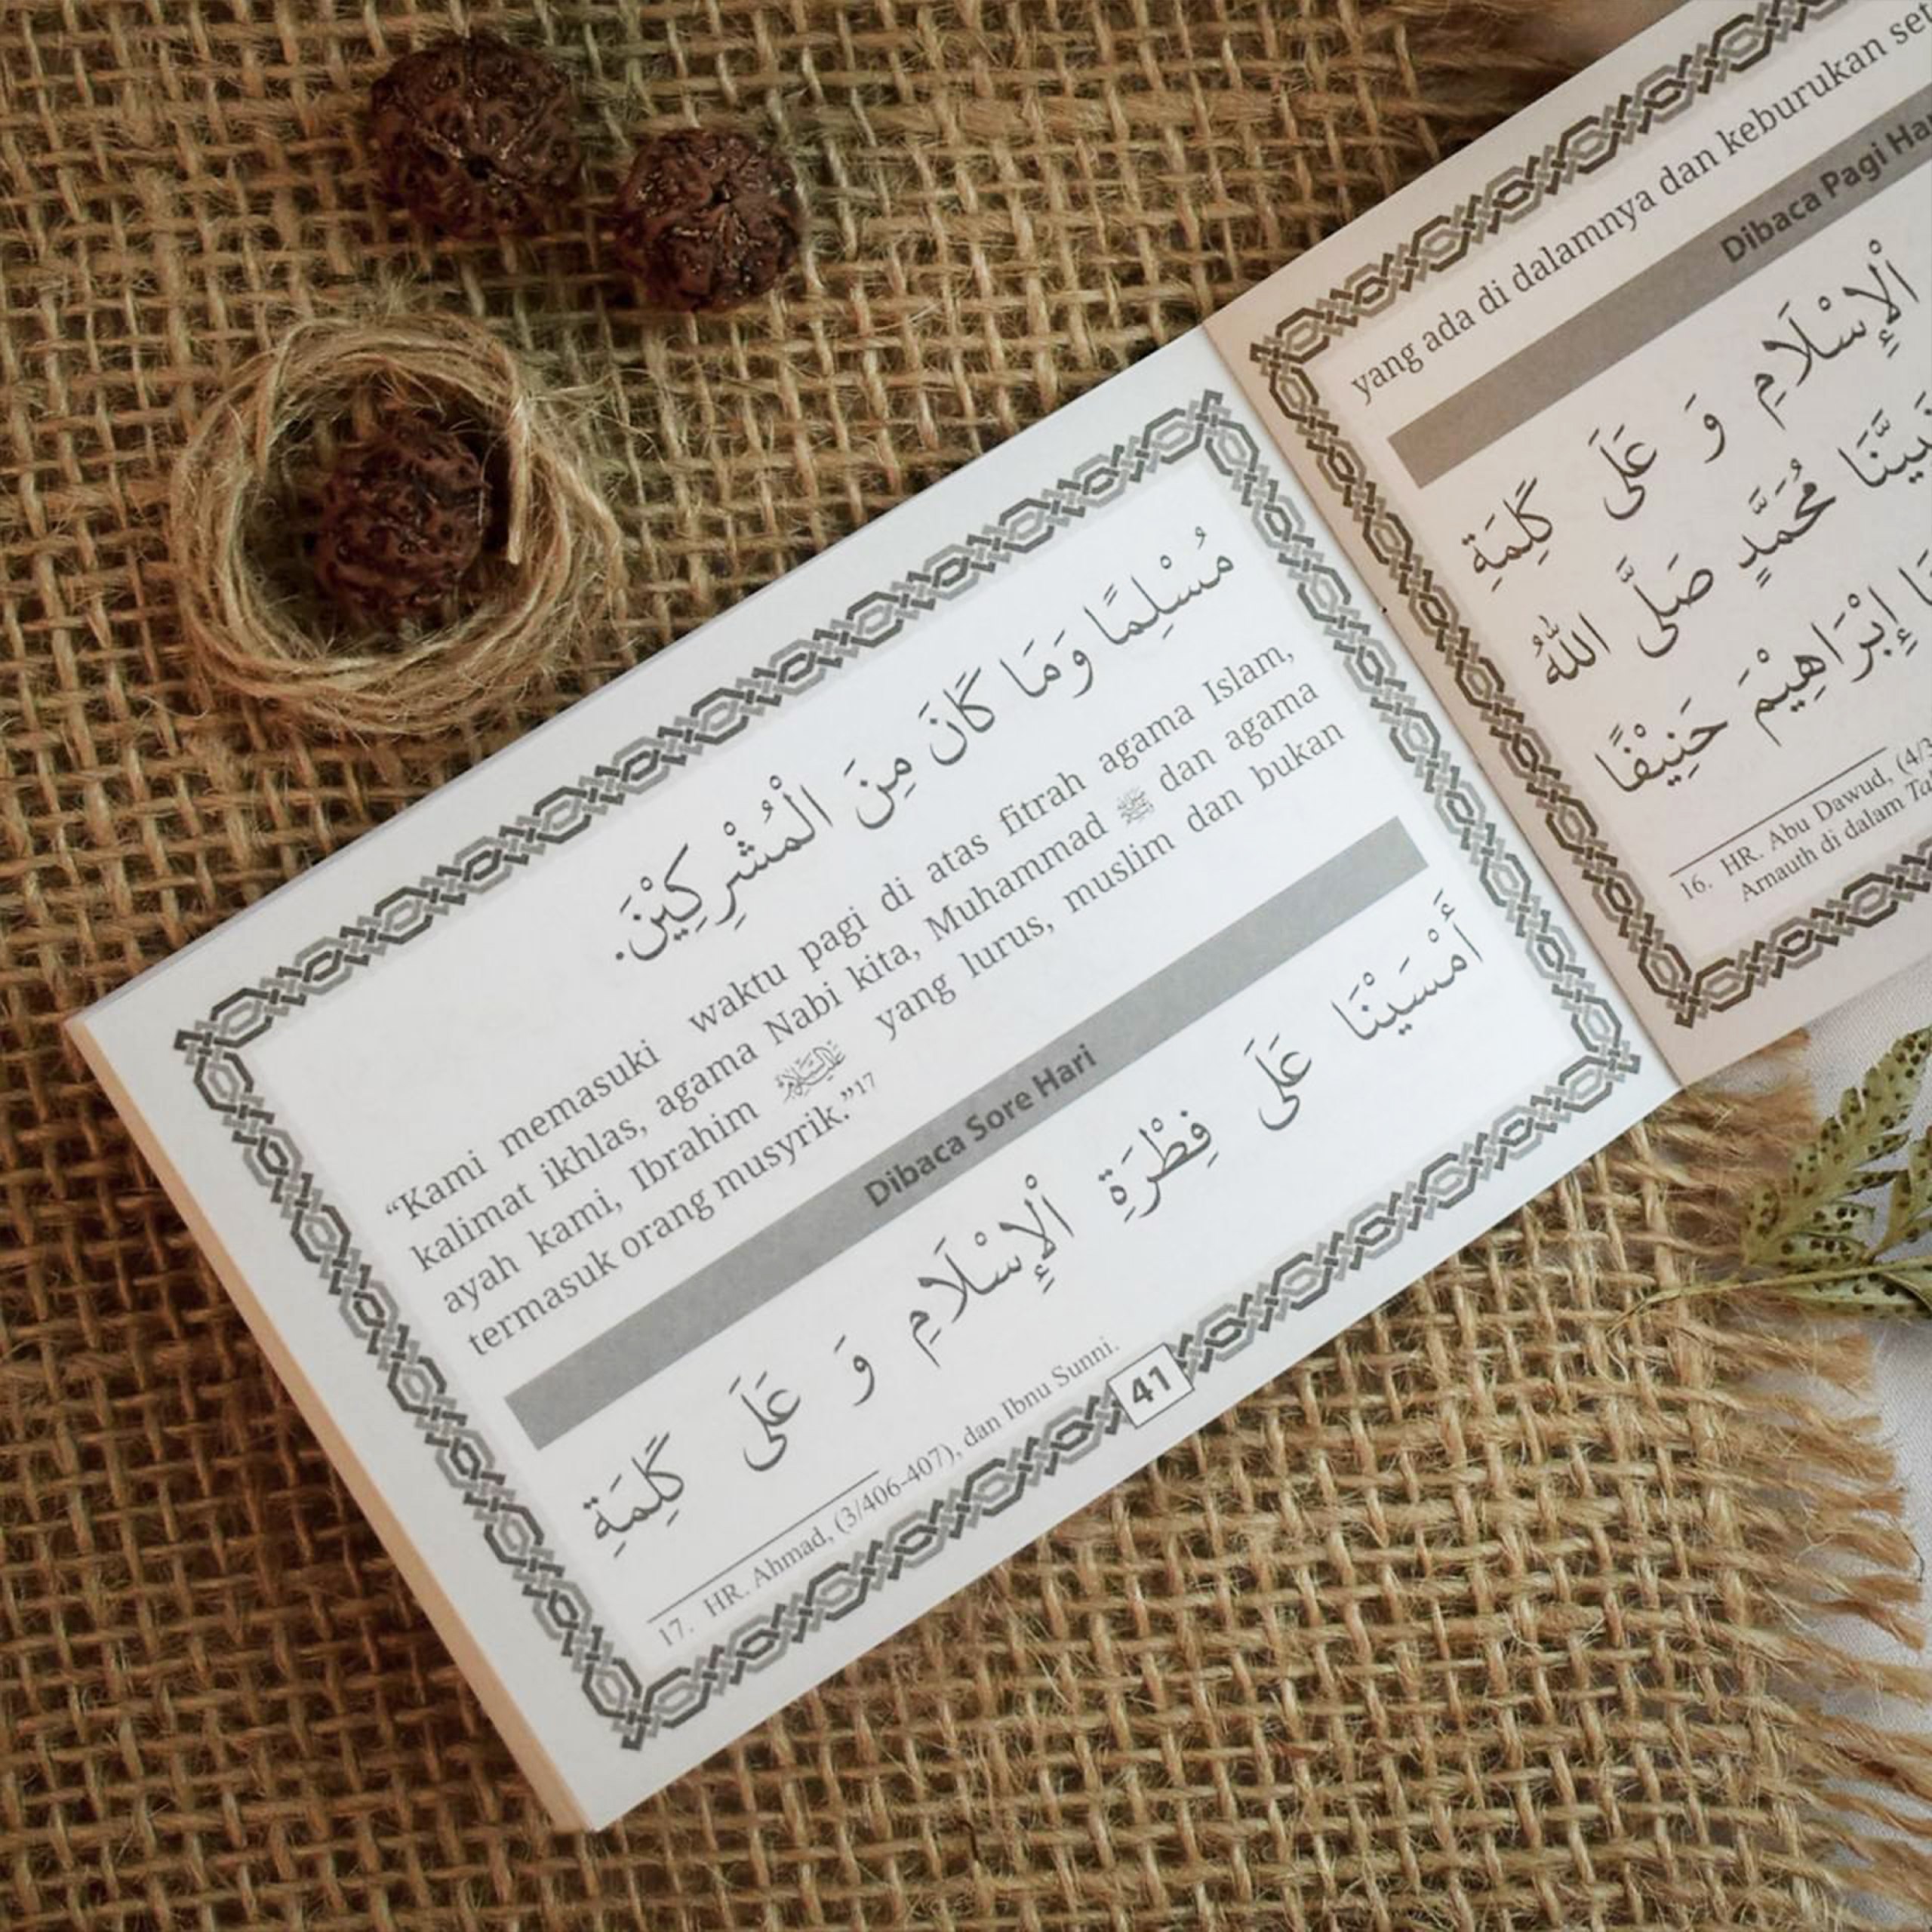 yang ada di dalamnya dan keburukan set
Dibaca Pagi Har
الْإِسْلَامِ وَ عَلَى كَلِمَةِ
مُحَمَّدٍ صَلَّى اللّٰهُ
إِبْرَاهِيْمَ حَنِيْفًا
16. HR. Abu Dawud, (4/3
Arnauth di dalam Ta
مُسْلِمًا وَمَا كَانَ مِنَ الْمُشْرِكِيْنَ.
“Kami memasuki waktu pagi di atas fitrah agama Islam,
kalimat ikhlas, agama Nabi kita, Muhammad ﷺ dan agama
ayah kami, Ibrahim عليه السلام yang lurus, muslim dan bukan
termasuk orang musyrik.”17
Dibaca Sore Hari
أَمْسَيْنَا عَلَى فِطْرَةِ الْإِسْلَامِ وَ عَلَى كَلِمَةِ
17. HR. Ahmad, (3/406-407), dan Ibnu Sunni.
41